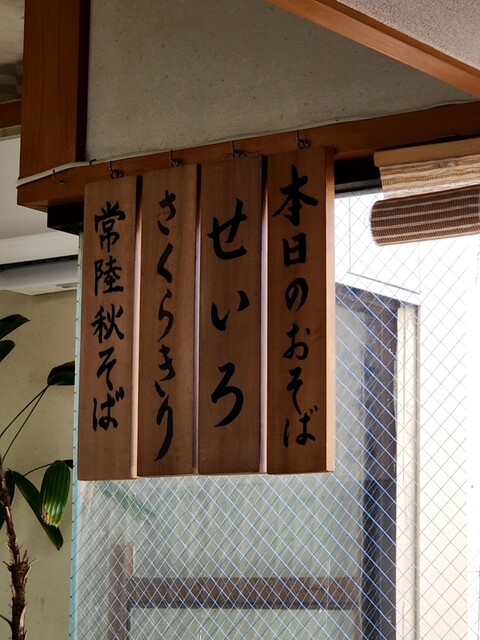 本日のおそば
せいろ
さくらきり
常陸秋そば